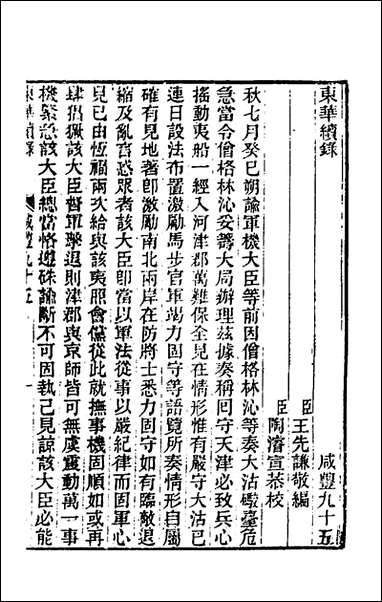 東華續錄
咸豐九十五
臣王先謙敬編
臣陶濬宣恭校
秋七月癸巳朔諭軍機大臣等前因僧格林沁等奏大沽礮臺危
急當令僧格林沁妥籌大局辦理茲據奏稱囘守天津必致兵心
搖動夷船一經入河津郡萬難保全見在情形惟有嚴守大沽已
連日設法布置激勵馬步官軍竭力固守等語覽所奏情形自屬
確有見地著卽激勵南北兩岸在防將士悉力固守如有臨敵退
縮及亂言惑眾者該大臣卽當以軍法從事以嚴紀律而固軍心
見已由恆福兩次給與該夷照會儻從此就撫事機固順如或再
肆猖獗該大臣督軍擊退則津郡與京師皆可無虞震動萬一事
機緊急該大臣總當恪遵硃諭斷不可固執己見諒該大臣必能
東華續錄
咸豐九十五
一